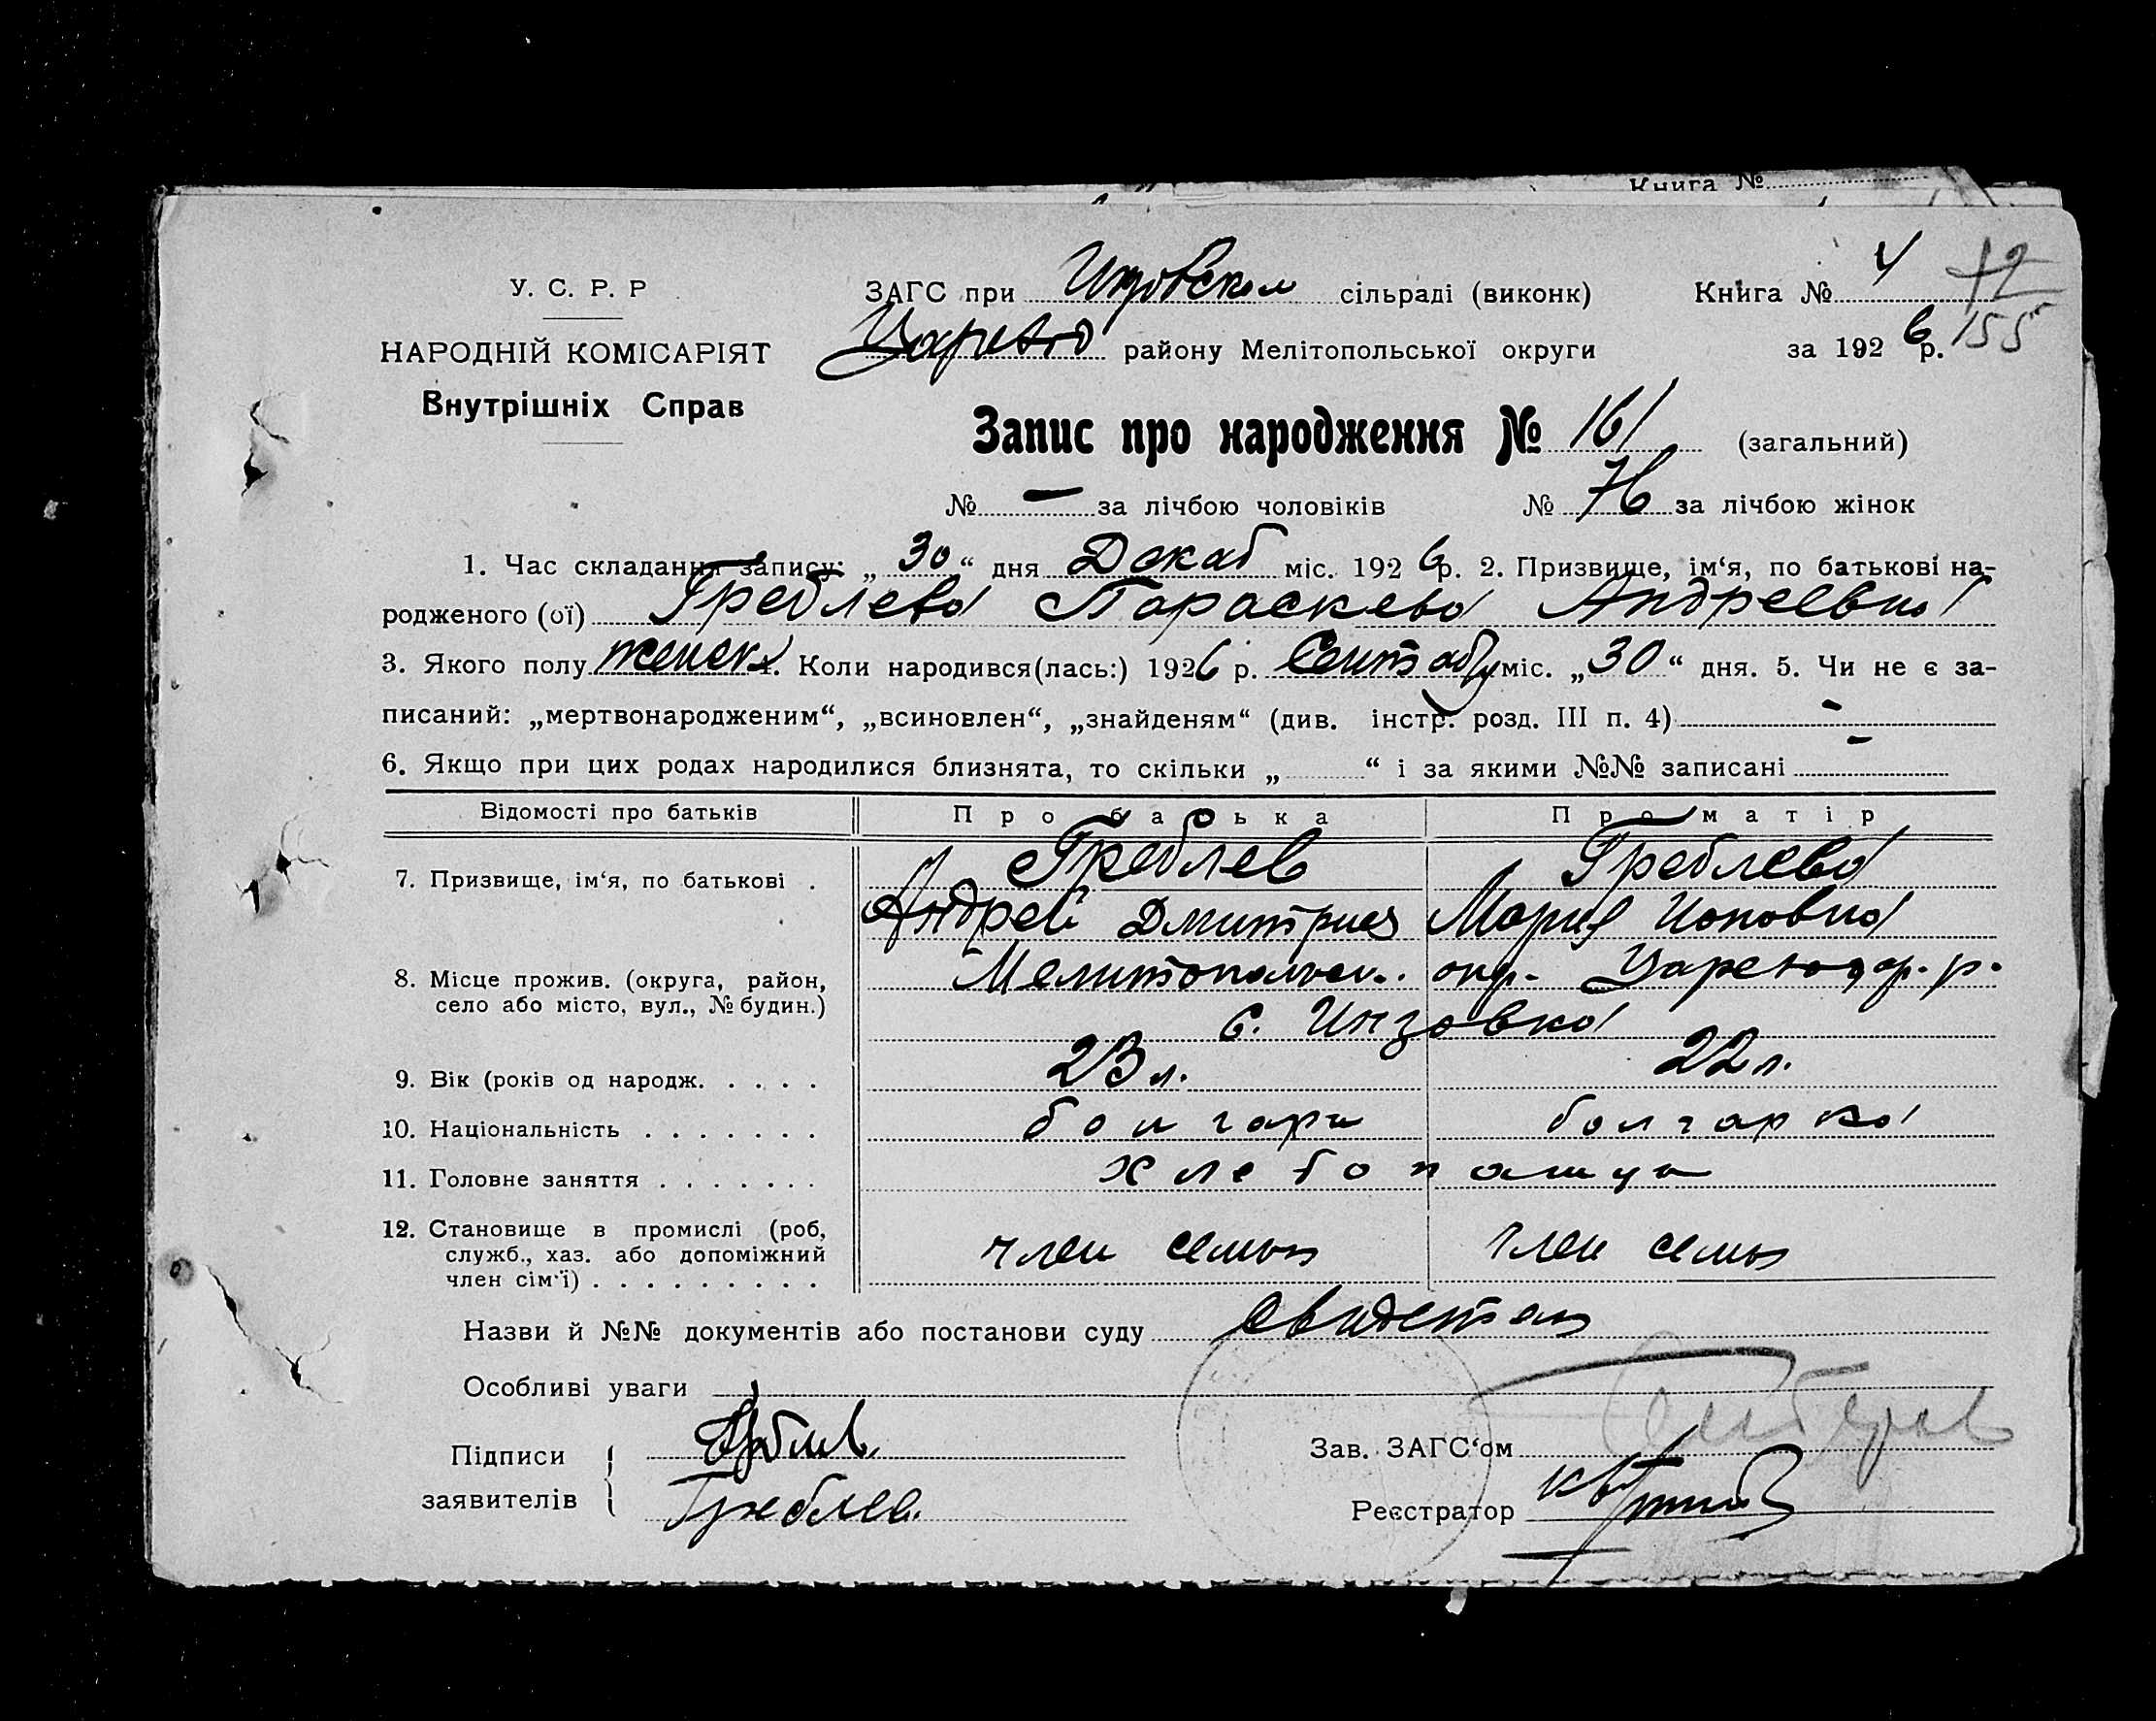 Книга №
У. С. Р. Р
НАРОДНІЙ КОМІСАРІЯТ
Внутрішніх Справ
ЗАГС при Инзовском сільраді (виконк)
Книга № 4 12
Царевод району Мелітопольської округи
за 1926 р. 155
Запис про народження № 161 (загальний)
№ — за лічбою чоловіків № 76 за лічбою жінок
1. Час складання запису: „30“ дня Декаб міс. 1926 р. 2. Призвище, ім‘я, по батькові на-
родженого (ої) Греблева Параскева Андреевна
3. Якого полу женск 4. Коли народився(лась:) 1926 р. Сентябр міс. „30“ дня. 5. Чи не є за-
писаний: „мертвонародженим“, „всиновлен“, „знайденям“ (див. інстр. розд. III п. 4) -
6. Якщо при цих родах народилися близнята, то скільки „ “ і за якими №№ записані -
Відомості про батьків Про батька Про матір
7. Призвище, ім‘я, по батькові . Греблев Греблева
Андрей Дмитриев Мария Ионовна
8. Місце прожив. (округа, район, село або місто, вул., № будин.) Мелитопольск. окр. Цареводар. р.
с. Инзовка
9. Вік (років од народж. . . . . 23 л. 22 л.
10. Національність . . . . . . . болгари болгарка
11. Головне заняття . . . . . . . хлебопашцы
12. Становище в промислі (роб,
служб., хаз. або допоміжний
член сім‘ї) . . . . . . . . . член семьи член семьи
Назви й №№ документів або постанови суду свидетели
Особливі уваги
Підписи
заявителів
Греблев
Греблев.
Зав. ЗАГС‘ом
Реєстратор